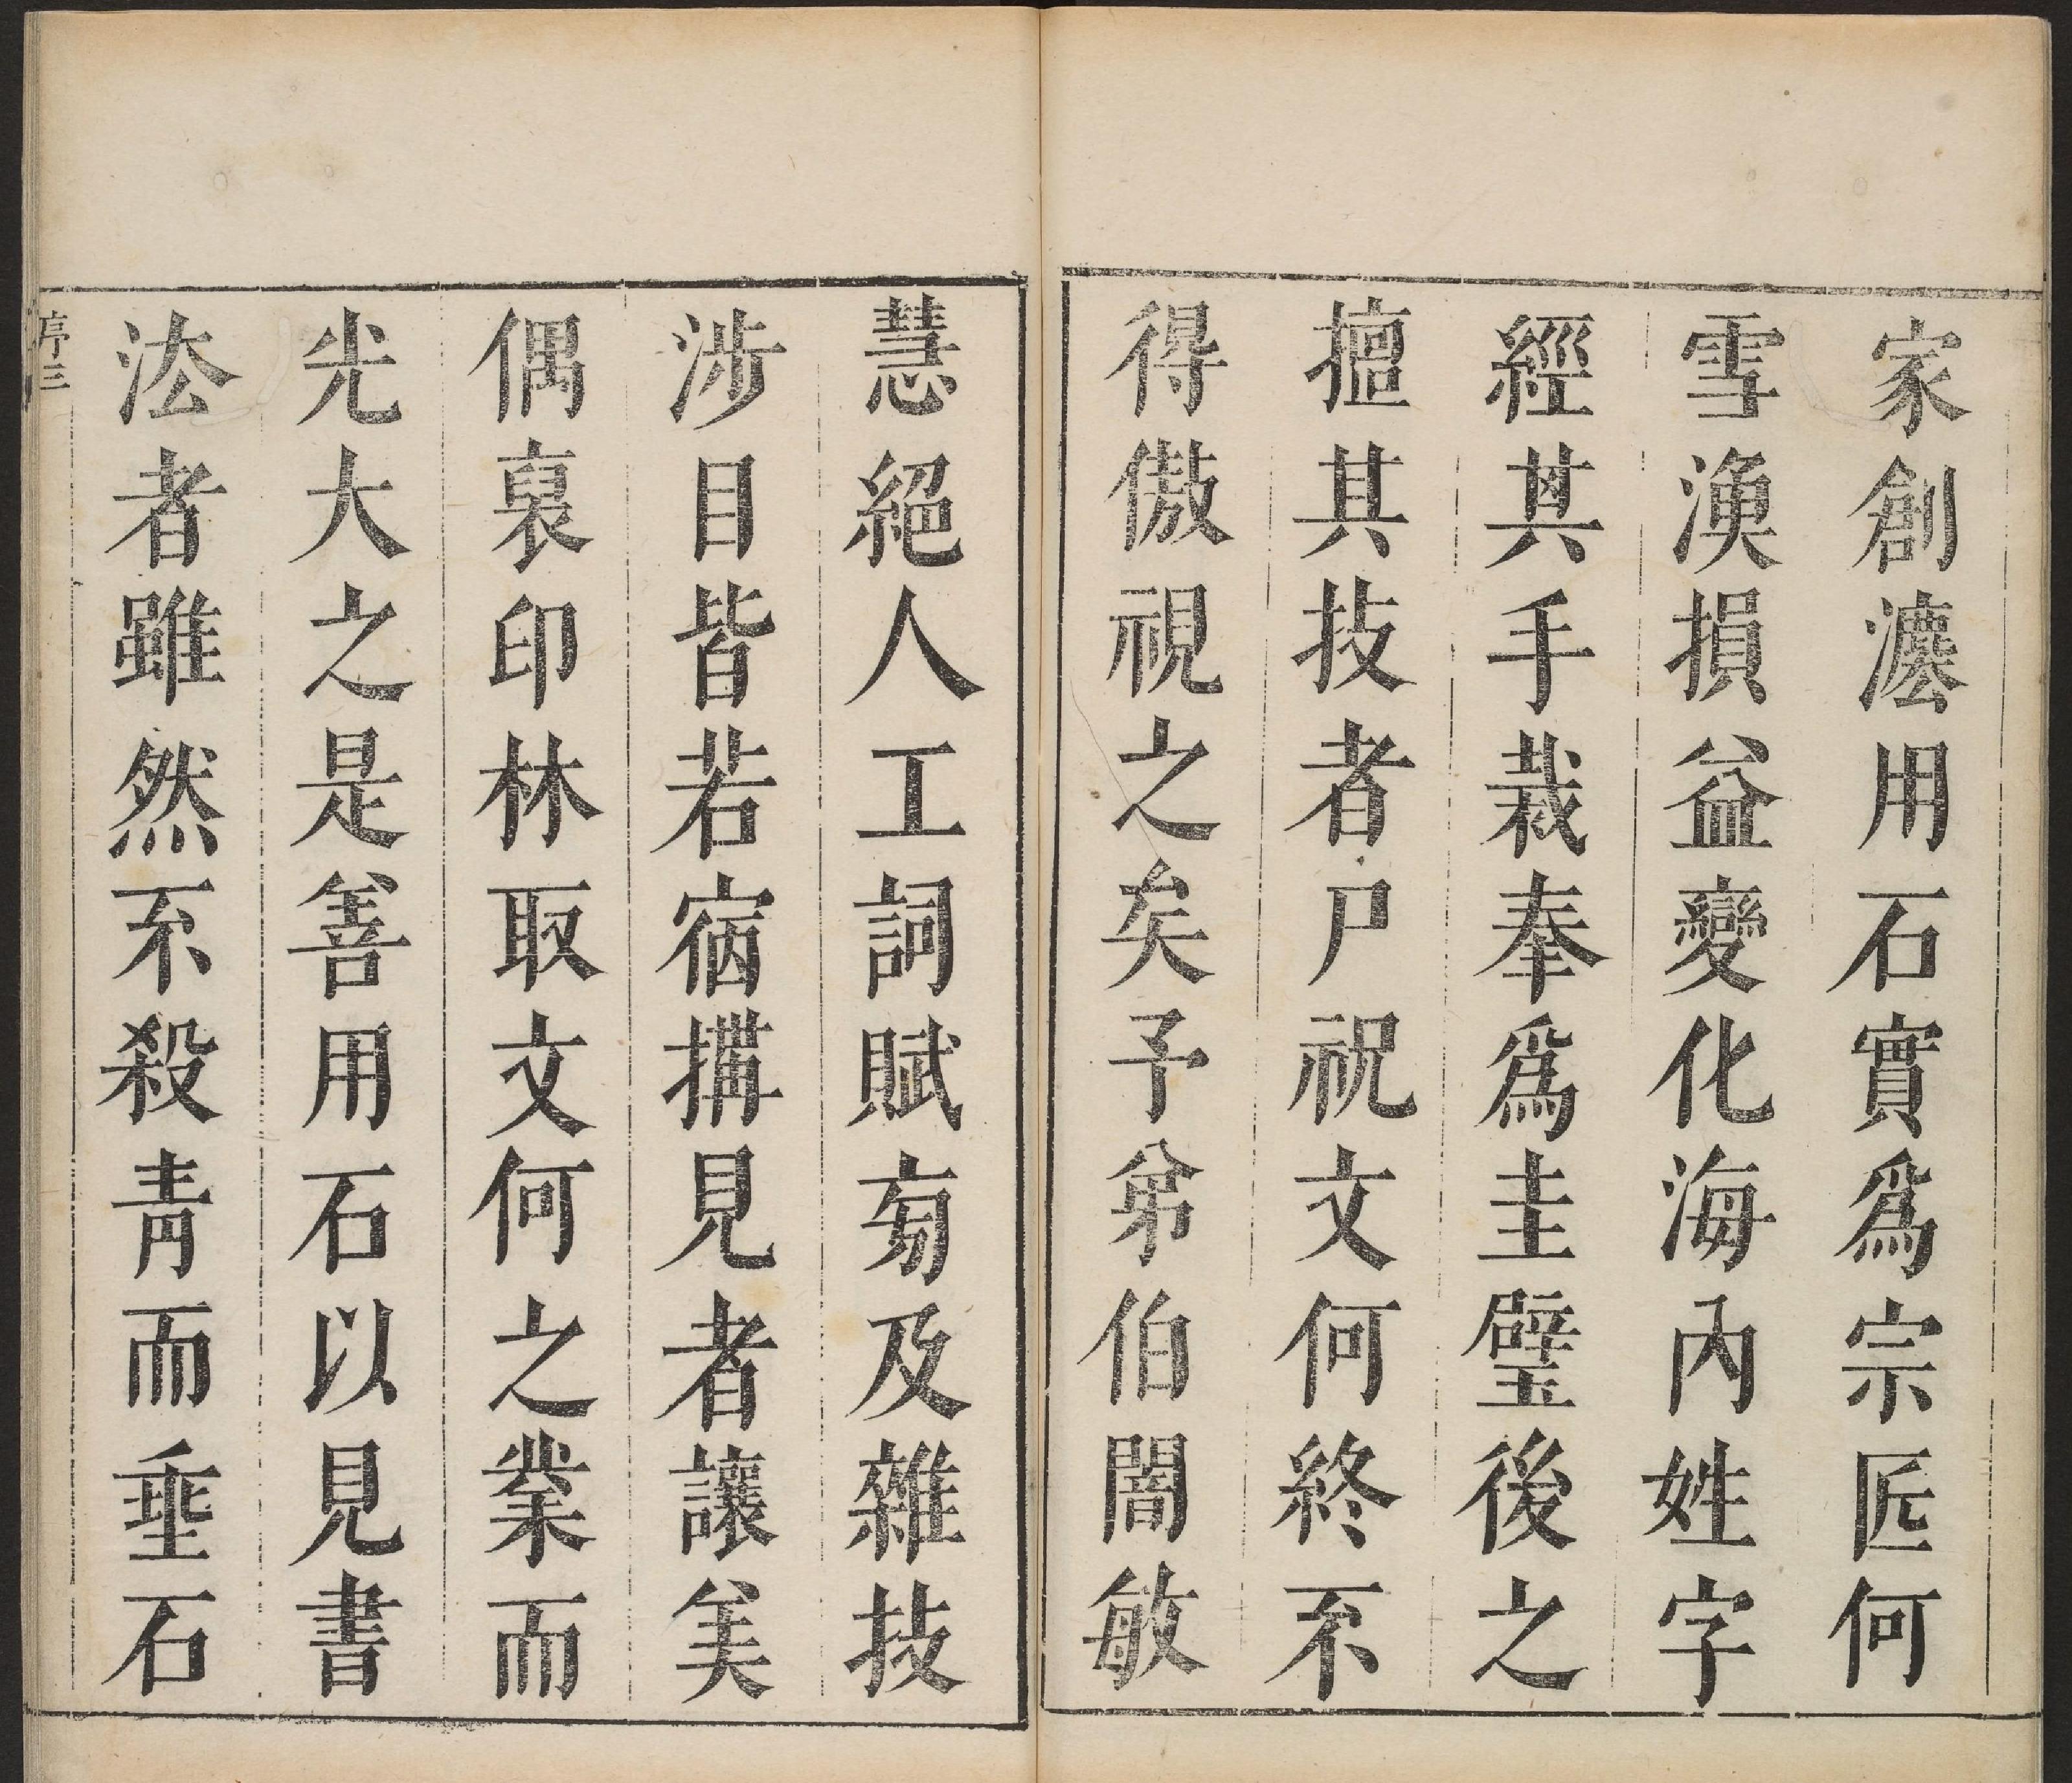 家創灋用石實爲宗匠何
雪漁損益變化海內姓字
經其手裁奉爲圭璧後之
擅其技者尸祝文何終不
得傲視之矣予弟伯闇敏
慧絕人工詞賦旁及雜技
涉目皆若宿搆見者讓美
偶裒印林取文何之業而
光大之是善用石以見書
法者雖然不殺青而垂石
序三